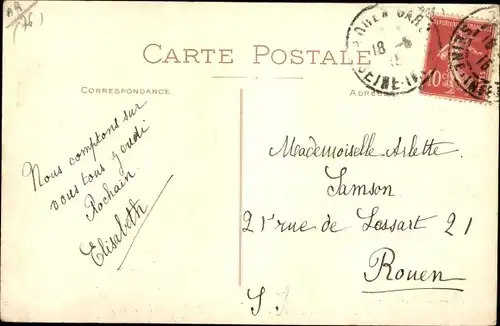 AR
(76)
CARTE POSTALE
CORRESPONDANCE
ROUEN GARE
18 - 6
SEINE-INF
10
Nous comptons sur
vous tous jeudi
Rochain.
Elisabeth
Mademoiselle Arlette
Samson
21 rue de Lessart 21
Rouen
S. I